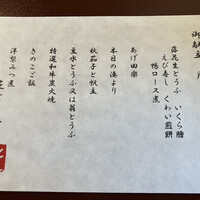 落花生とうふ いくら膾
えび寿し くわい煎餅
鴨ロース煮
あげ田楽
本日の湊より
秋茄子と帆立
豆水とうふ又は蕎とうふ
特選和牛炭火焼
きのこご飯
洋梨みつ煮